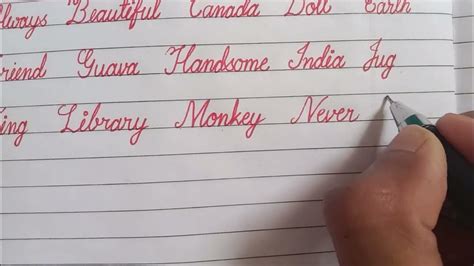 lways Beautiful Canada Doll Earth
riend Guava Handsome India Jug
ing Library Monkey Never